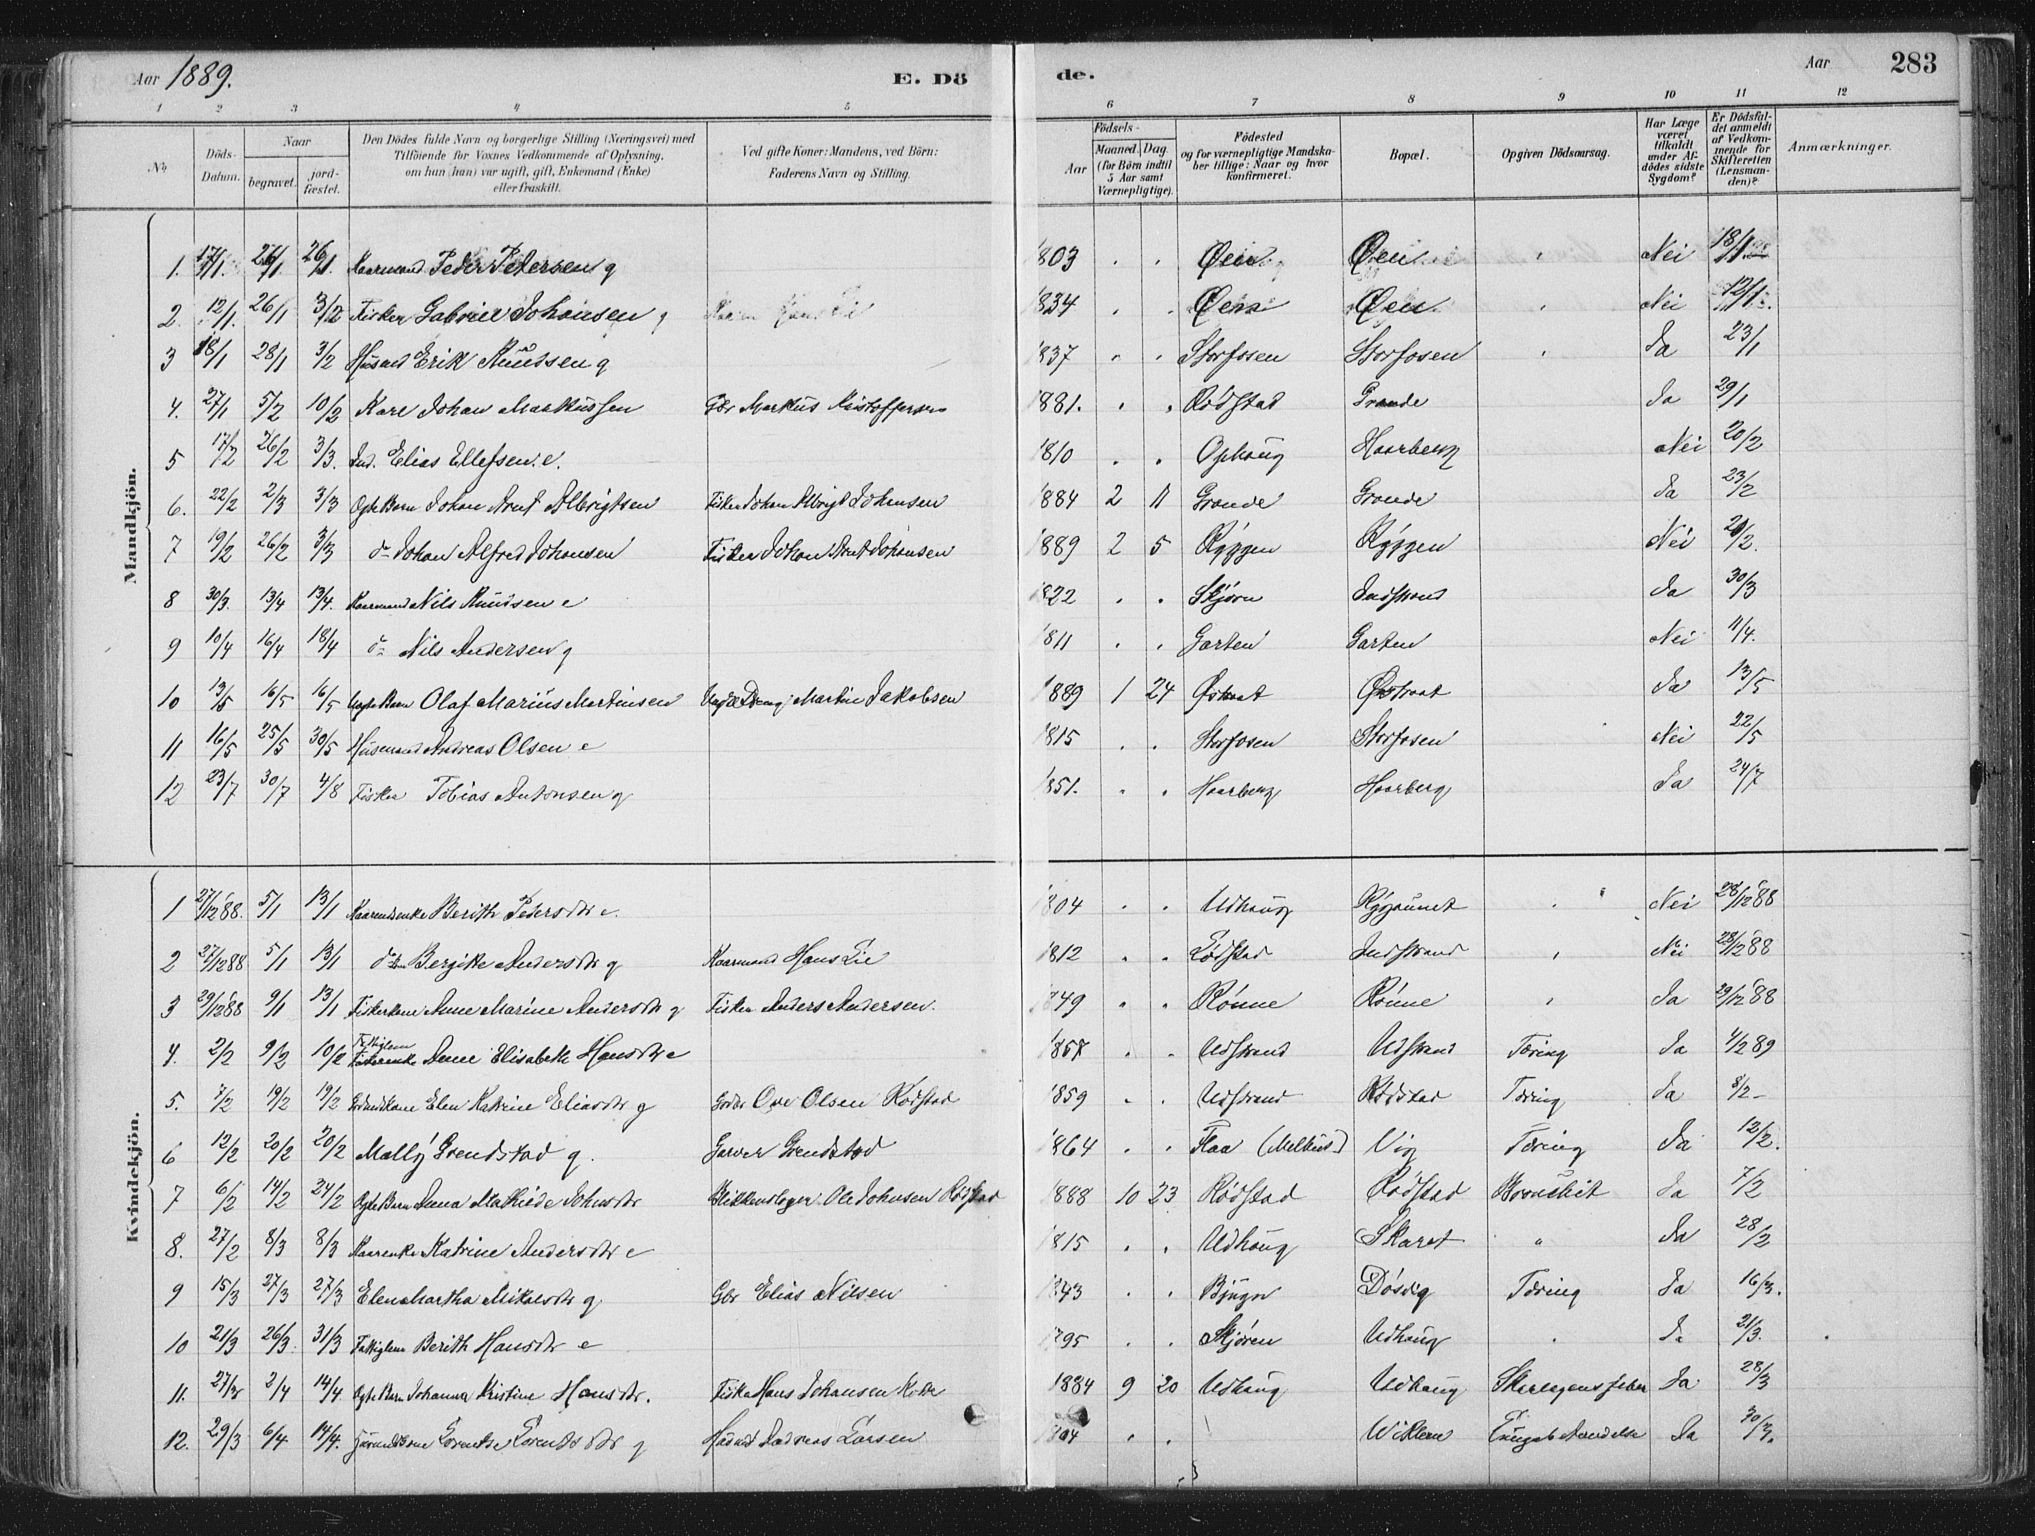 Aar 1889.
E. Dö
de.
Aar
283
1 2 3 4 5 6 7 8 9 10 11 12
No.
Döds-Datum.
Naar
begravet.
jord-fæstet.
Den Dödes fulde Navn og borgerlige Stilling (Næringsvei) med
Tilföiende for Voxnes Vedkommende af Oplysning,
om han (hun) var ugift, gift, Enkemand (Enke)
eller fraskilt.
Ved gifte Koner: Mandens, ved Börn:
Faderens Navn og Stilling.
Födsels-
Aar
Maaned. Dag.
(for Börn indtil
5 Aar samt
Værnepligtige).
Födested
og for værnepligtige Mandska-
ber tillige: Naar og hvor
konfirmeret.
Bopæl.
Opgiven Dödsaarsag.
Har Læge
været
tilkaldt
under Af-
dödes sidste
Sygdom?
Er Dödsfal-
det anmeldt
af Vedkom-
mende for
Skifteretten
(Lensman-
den)?
Anmærkninger.
Mandkjön.
1. 17/1 26/1 26/1 Kaarmand Peder Pedersen g 1803 " " Øen Øen " Nei 18/1
2. 12/1 26/1 3/2 Fisker Gabriel Johansen g 1834 " " Øen Øen " Nei 12/1
3 18/1 28/1 3/2 Husmd Erik Knudsen g 1837 " " Storfosen Storfosen " Ja 23/1
4. 27/1 5/2 10/2 Karl Johan Markussen Gbr Markus Kristoffersen 1881. " " Rødstad Grande Ja 29/1
5 17/2 26/2 3/3. Ind. Elias Ellefsen. e. 1810 " " Ophaug Haarberg Nei 20/2
6. 22/2 2/3 3/3 Ægte Barn Johan Arnt Albrigtsen Fisker Johan Albrigt Johansen 1884 2 11 Grande Grande Ja 23/2
7 19/2 26/2 3/3 do Johan Alfred Johansen Fisker Johan Arnt Johansen 1889 2 5 Ryggen Ryggen Nei 20/2.
8 30/3. 13/4 13/4. Kaarmand Nils Knudsen e 1822 " " Skjørn Indstrand Ja 30/3
9 10/4 16/4 18/4 do Nils Andersen g 1811 " " Garten Garten Nei 11/4.
10 13/5 16/5 16/5 Uægte Barn Olaf Marius Martinsen Ungk. Dreng Martin Jakobsen 1889 1 24 Østraat Østraat Ja 13/5
11 16/5 25/5 30/5 Husmand Andreas Olsen e 1815 " " Storfosen Storfosen Nei 22/5
12 23/7 30/7 4/8 Fisker Tobias Antonsen g 1851. " " Haarberg Haarberg Ja 24/7
Kvindekjön.
1 27/12 88. 5/1 13/1 Kaarenke Berith Pedersdtr e. 1804 " " Udhaug Ryggaunet " Nei 28/12 88
2 27/12 88 5/1 13/1 do Bergitte Andersdtr g Kaarmand Hans Lie 1812 " " Lødstad Indstrand " Nei 28/12 88
3 29/12 88 9/1 13/1 Fiskerkone Anne Marine Andersdtr g Fisker Anders Andersen. 1849 " " Rønne Rønne " Ja 29/12 88
4. 2/2 9/2 10/2 Fattiglem Anne Elisabeth Hansdtr e 1857 " " Udstrand Udstrand Tæring Ja 4/2 89
5. 7/2 19/2 19/2 Gbr.kone Elen Katrine Eliasdtr g Gbr Ove Olsen Rødstad 1859 " " Udstrand Rødstad Tæring Ja 8/2
6 12/2 20/2 20/2 Mally Grendstad g. Garver Grendstad 1864 " " Flaa (Melhus) Vig Tæring Ja 12/2.
7 6/2 14/2 24/2 Ægte Barn Anna Mathilde Johnsdtr Blikkenslager Ole Johnsen Rødstad 1888 10 23 Rødstad Rødstad Bronchit Ja 7/2
8. 27/2 8/3 8/3 Kaarenke Katrine Andersdtr e 1815 " " Udhaug Skaret " Ja 28/2
9 15/3 27/3 27/3 Elen Martha Mikalsdtr g Gbr Elias Nilsen 1843 " " Bjugn Døsvig Tæring Ja 16/3.
10 21/3 26/3 31/3 Fattiglem Berith Hansdtr e 1795 " " Skjøren Udhaug " Ja 21/3.
11. 27/3 2/4 14/4. Ægte Barn Johanna Kristine Hansdtr. Fisker Hans Johansen 1884 9 20 Udhaug Udhaug Skarlagensfeber Ja 28/3
12. 29/3 6/4 14/4. Lorentse Lorentsdtr g Husmd Andreas Larsen " " Viklem Lungebetændelse Ja 30/3.